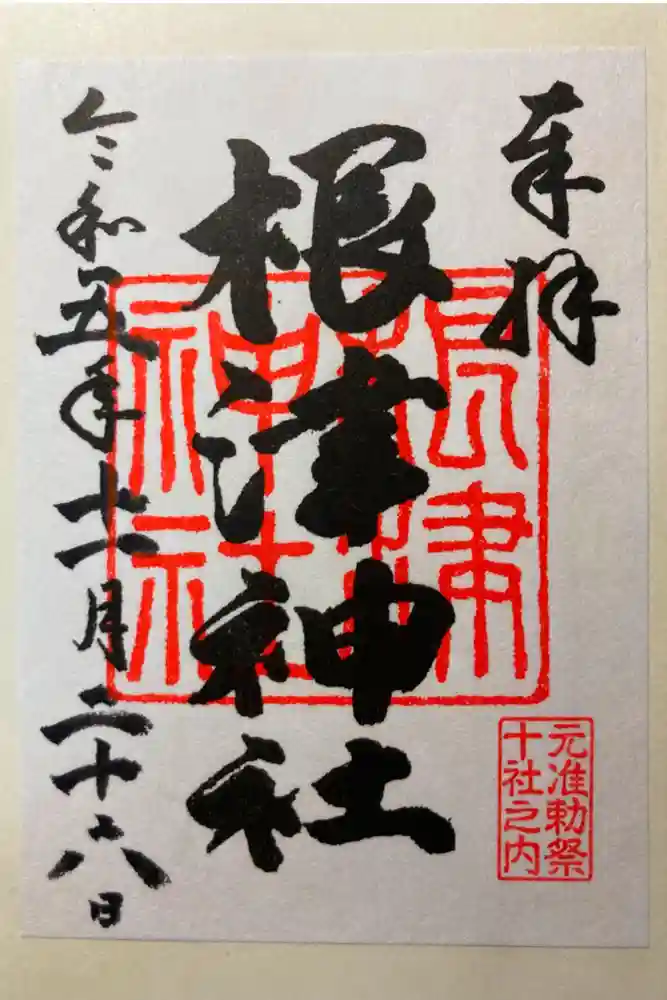 奉拝
根津神社
根津神社
元准勅祭
十社之内
令和五年十一月二十六日